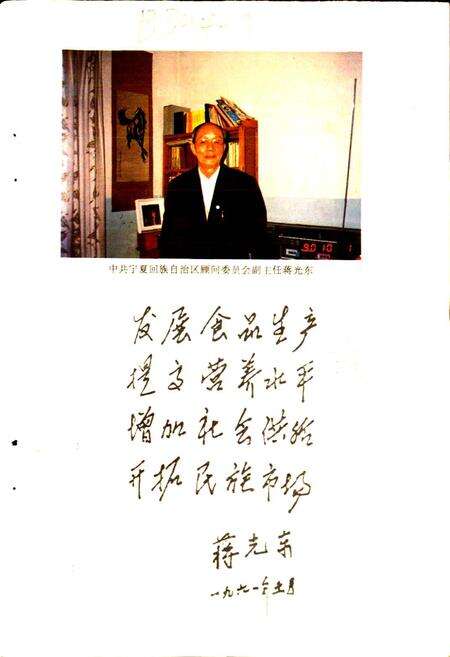 9:01 01
中共宁夏回族自治区顾问委员会副主任蒋光东
发展食品生产
提高营养水平
增加社会供给
开拓民族市场
蒋光东